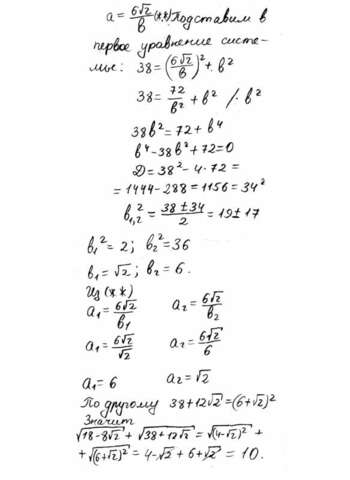 a = 6√2/b (**) Подставим в
первое уравнение систе-
мы: 38 = (6√2/b)² + b²
38 = 72/b² + b² /· b²
38b² = 72 + b⁴
b⁴ - 38b² + 72 = 0
D = 38² - 4·72 =
= 1444 - 288 = 1156 = 34²
b₁,₂² = (38 ± 34)/2 = 19 ± 17
b₁² = 2; b₂² = 36
b₁ = √2; b₂ = 6.
Из (**)
a₁ = 6√2/b₁ a₂ = 6√2/b₂
a₁ = 6√2/√2 a₂ = 6√2/6
a₁ = 6 a₂ = √2
По другому 38 + 12√2 = (6 + √2)²
Значит
√(18 - 8√2) + √(38 + 12√2) = √(4 - √2)² +
+ √(6 + √2)² = 4 - √2 + 6 + √2 = 10.